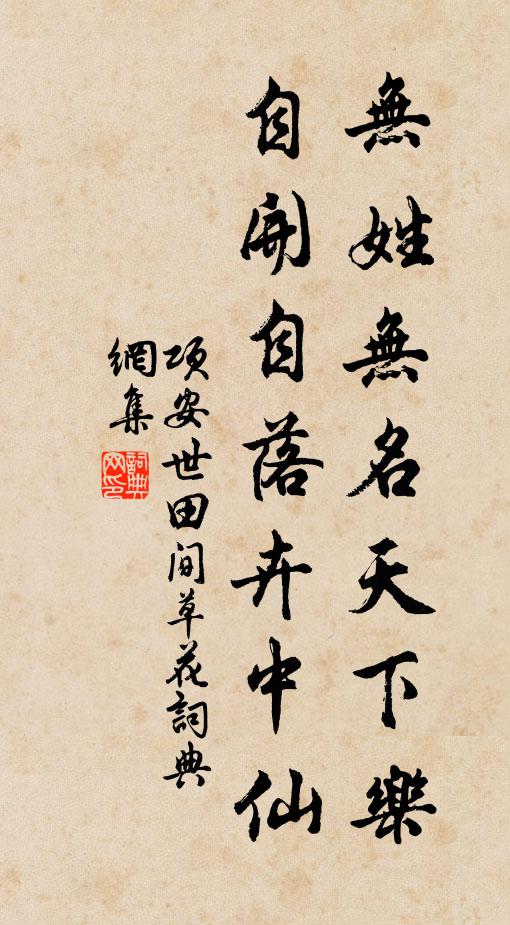 無姓無名天下樂
自開自落卉中仙
項安世田间草花詞典
網集
詞典
网印